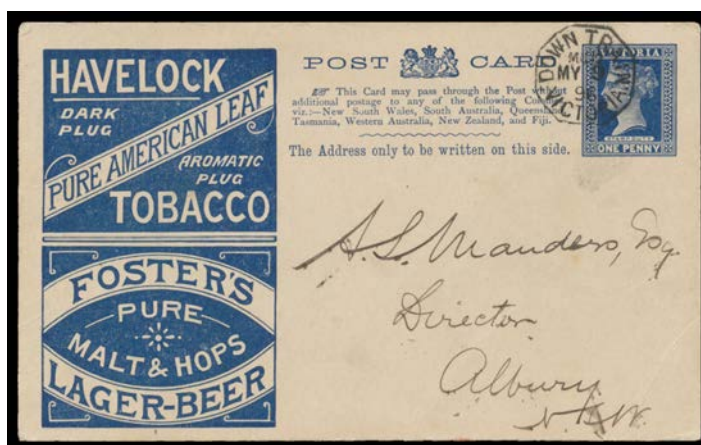 HAVELOCK
DARK
PLUG
PURE AMERICAN LEAF
AROMATIC
PLUG
TOBACCO
FOSTER'S
PURE
MALT & HOPS
LAGER-BEER
POST CARD
This Card may pass through the Post without
additional postage to any of the following
viz.:—New South Wales, South Australia, Queensland
Tasmania, Western Australia, New Zealand, and Fiji.
The Address only to be written on this side.
DOWN
MY
VICTORIA
ONE PENNY
A. L. Manders, Esq.
Director
Albury
N.S.W.